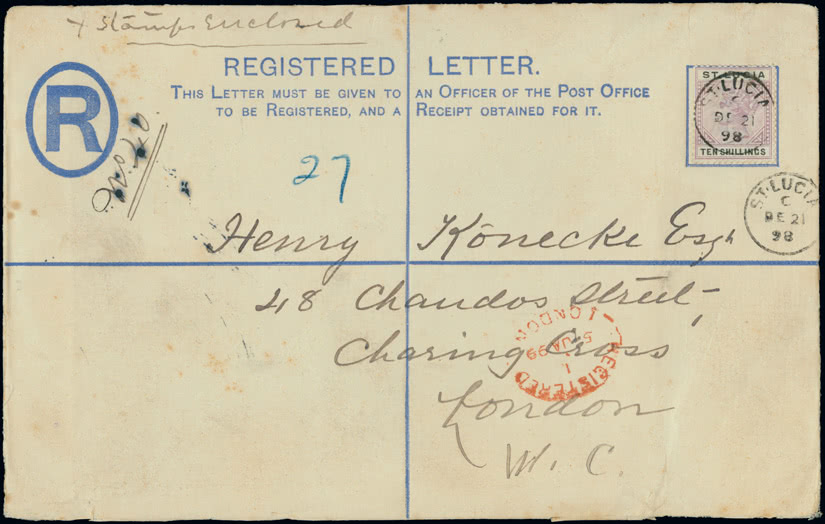 + Stamps Enclosed
REGISTERED LETTER.
THIS LETTER MUST BE GIVEN TO AN OFFICER OF THE POST OFFICE
TO BE REGISTERED, AND A RECEIPT OBTAINED FOR IT.
R
ST. LUCIA
TEN SHILLINGS
ST. LUCIA
C
DE 21
98
ST. LUCIA
C
DE 21
98
27
Henry Könecke Esqr
48 Chandos Street,
Charing Cross
London
W. C.
REGISTERED
1
5 JA 99
LONDON